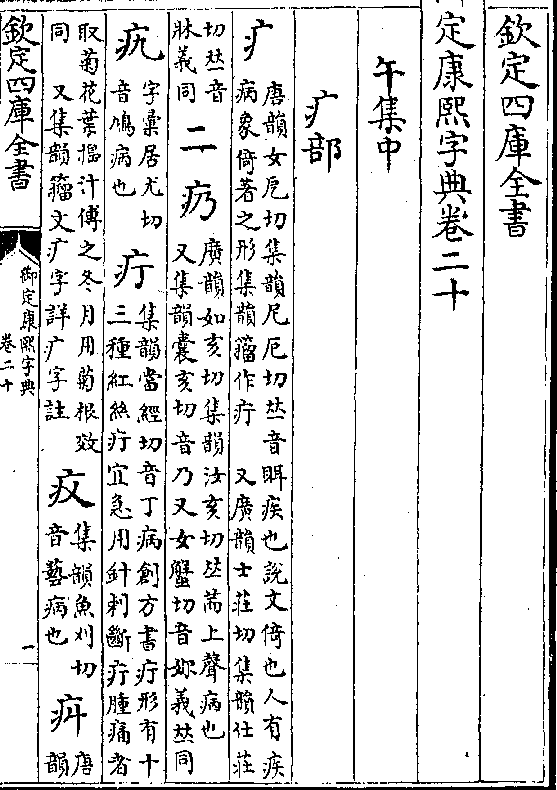 欽定四庫全書
定康熙字典卷二十
午集中
疒部
疒
唐韻女戹切集韻尼厄切𠀤音眲疾也說文倚也人有疾
病象倚著之形集韻籀作疔 又廣韻士莊切集韻仕莊
切𠀤音
牀義同
二
疓
廣韻如亥切集韻汝亥切𠀤荋上聲病也
又集韻囊亥切音乃又女蟹切音𡝚義𠀤同
疚
字彙居尤切
音鳩病也
疔
集韻當經切音丁病創方書疔形有十
三種紅絲疔宜急用針刺斷疔腫痛者
取菊花葉搵汁傅之冬月用菊根效
同 又集韻籀文疒字詳疒字註
㽸
集韻魚刈切
音藝病也
疛
唐
韻
欽定四庫全書
御定康熙字典
卷二十
一